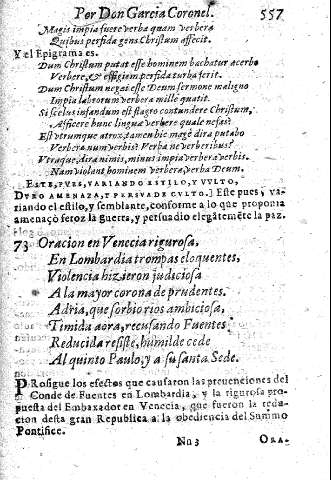 Por Don Garcia Coronel. 557
Magis impia fuere verba quam verbera
Quibus perfida gens Christum affecit.
Y el Epigrama es.
Dum Christum putat esse hominem bachatur acerbo
Verbere, & effigiem perfida turba ferit.
Dum Christum negat esse Deum sermone maligno
Impia labrorum verbera mille quatit.
Si scelus infandum est flagro contundere Christum,
Afficere hunc lingua verbere quale nefas?
Est vtrumque atrux, tamen hic magè dira putabo
Verbera num verbis? Verba ne verberibus?
Vtraque, dira nimis, minus impia verbera verbis.
Nam violant hominem verbera, verba Deum.
ESTE, PVES, VARIANDO ESTILO, Y VVLTO,
DVRO AMENAZA, Y PERSVADE CVLTO.] Este pues, va-
riando el estilo, y semblante, conforme a lo que proponia
amenaçò feroz la guerra, y persuadio elegātemēte la paz.
73 Oracion en Venecia rigurosa,
En Lombardia trompas eloquentes,
Violencia hizieron judiciosa
A la mayor corona de prudentes.
Adria, que sorbio rios ambiciosa,
Timida aora, recusando Fuentes
Reducida resiste, humilde cede
Al quinto Paulo, y a su santa Sede.
PRosigue los efectos que causaron las preuenciones del
Conde de Fuentes en Lombardia, y la rigurosa pro-
puesta del Embaxador en Venecia, que fueron la redu-
cion desta gran Republica a la obediencia del Summo
Pontifice.
Nn 3 ORA-